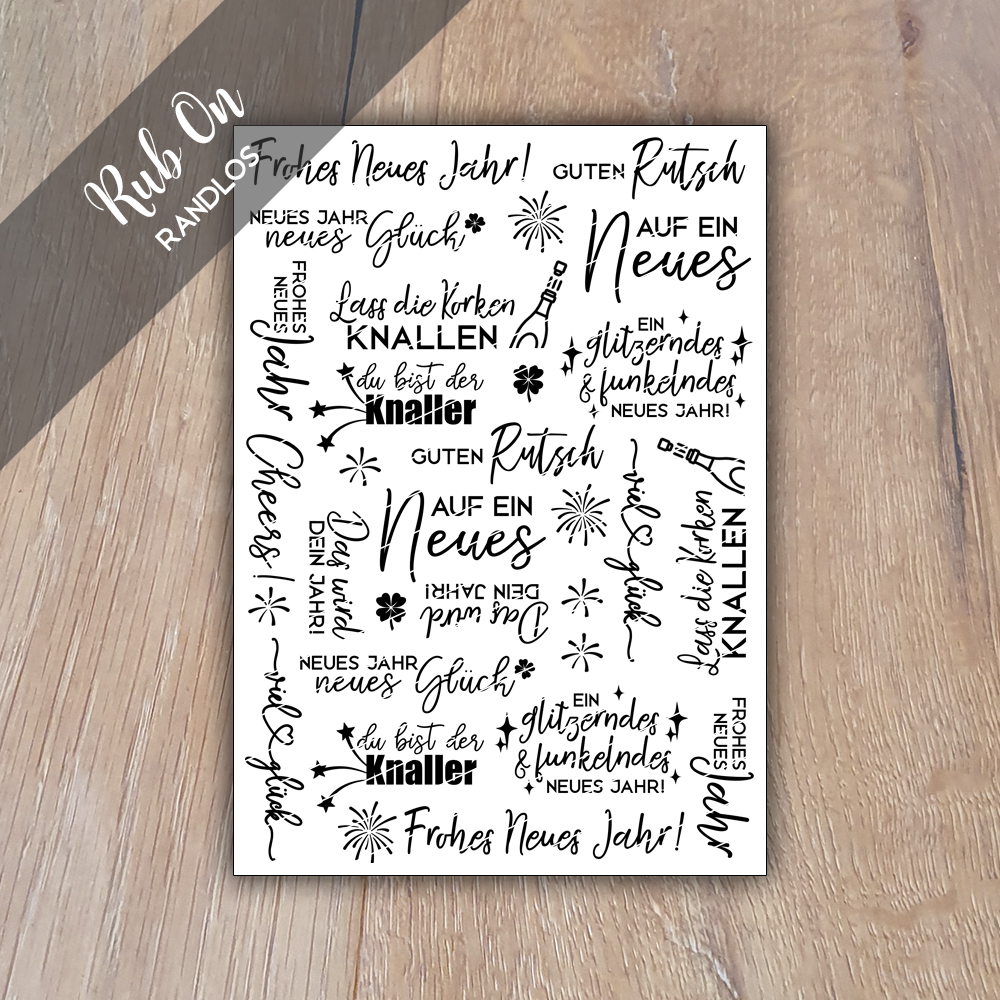 Rub On
RANDLOS
Frohes Neues Jahr!
GUTEN Rutsch
NEUES JAHR
neues Glück
AUF EIN
Neues
FROHES
NEUES
Jahr
Lass die Korken
KNALLEN
EIN
glitzerndes
& funkelndes
NEUES JAHR!
du bist der
Knaller
GUTEN Rutsch
Cheers!
AUF EIN
Neues
viel glück
Lass die Korken
KNALLEN
Das wird
DEIN JAHR!
Das wird
DEIN JAHR!
NEUES JAHR
neues Glück
viel glück
EIN
glitzerndes
& funkelndes
NEUES JAHR!
FROHES
NEUES
Jahr
du bist der
Knaller
Frohes Neues Jahr!